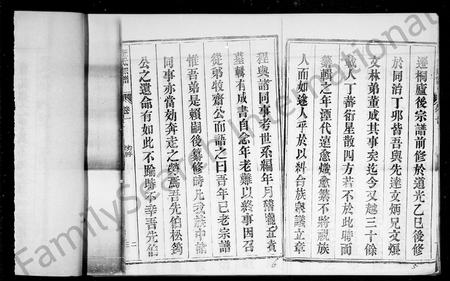 遷桐廬後宗譜前修於道光乙巳後修
於同治丁卯皆吾與先達文炳兄文煥
文林弟董成其事矣迄今又越三十餘
載人丁蕃衍星散四方若不於此時而
纂輯之年湮代遠愈熾愈繁不將視族
人而如途人乎於以糾合族與議立章
程與諸同事考世系編年月
纂輯有成書自念年老難以將事因召
從弟牧齋公而語之曰吾年已老宗譜
惟吾弟是賴嗣後纂修時凡我族中
同事亦當効奔走之勞焉吾先伯松筠
公之遺命有如此不踰時不幸吾先伯
卷一
二
FamilySearch International